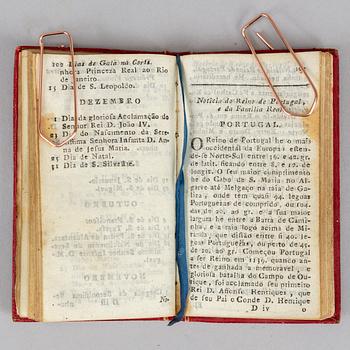 102 Dias de Gala na Corte.
nhora Princeza Real ao Rio
de Janeiro.
15 Dia de S. Leopoldo.
DEZEMBRO
1 Dia da gloriosa Acclamação do
Senhor Rei D. JOÃO IV.
Dia do Nascimento da Sere-
nissima Senhora Infanta D. An-
na de Jesus Maria.
25 Dia de Natal.
31 Dia de S. Silvestre.
No-
Noticia do Reino de Portugal,
e da Familia Real.
PORTUGAL.
O Reino de Portugal he o mais
occidental da Europa: esten-
de-se Norte-Sul entre 36. e 42. gr.
de latit. ficando entre S. e 12. de
longit. O seu maior cumprimento
he do Cabo de S. Maria no Al-
garve até Melgaço na raia de Ga-
liza, onde tem quasi 94. leguas
Portuguezas de comprido, ou roda-
das, de 20. ao gr. e a sua maior
largura he entre a Barra de Cami-
nha, e a raia logo acima de Mi-
randa; que distão entre si 40. leguas
Portuguezas, ou perto de 45.
de 20. ao gr. Começou Portugal
a ser Reino em 1139. quando an-
tes de ganhada a memoravel, e
gloriosa batalha do Campo de Ou-
rique, foi acclamado seu primeiro
Rei D. Affonso Henriques, que
de seu Pai o Conde D. Henrique
D iv o